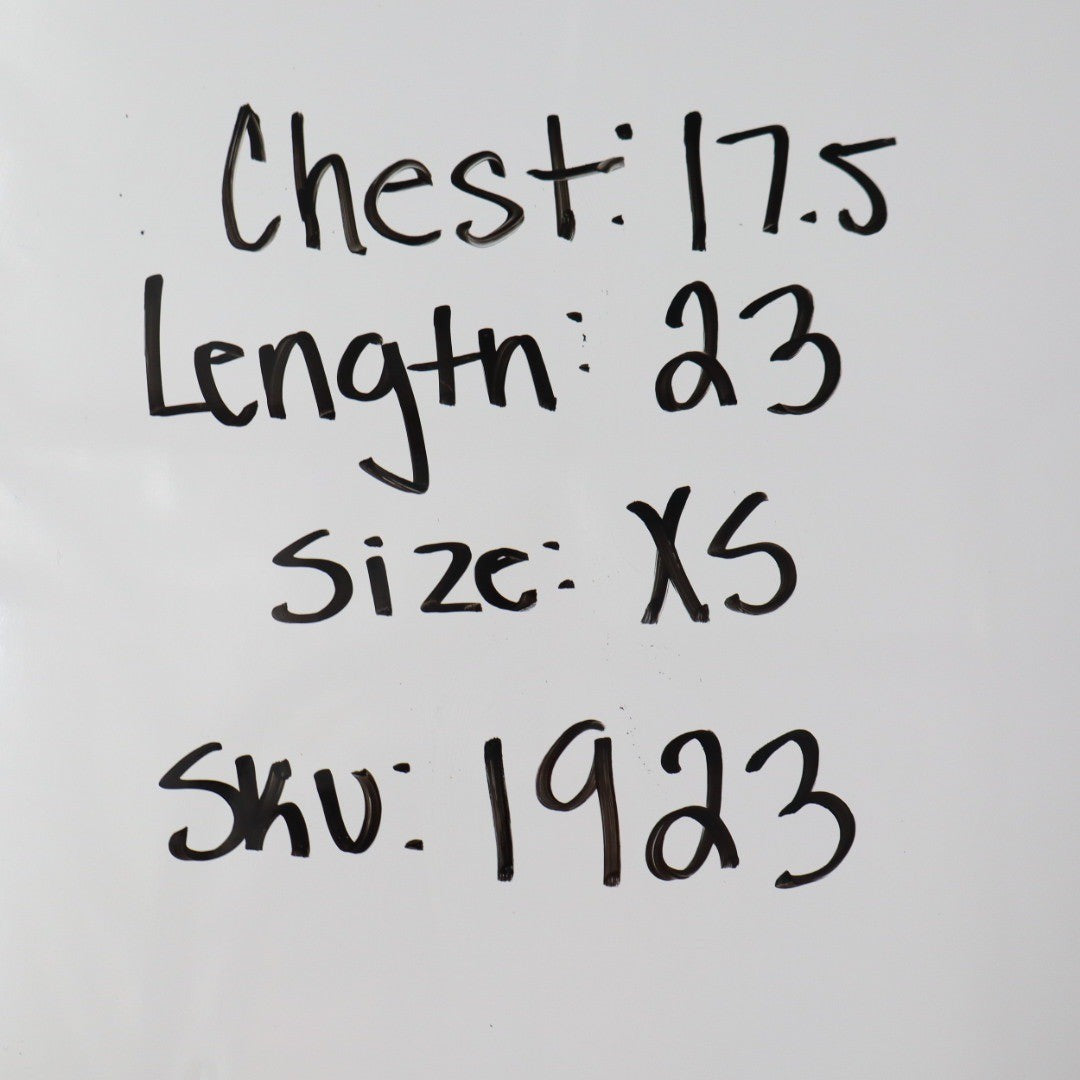 Chest: 17.5
Length: 23
Size: XS
SKU: 1923